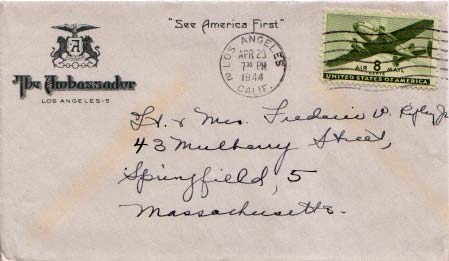 "See America First"
A
The Ambassador
LOS ANGELES - 5
LOS ANGELES
2
APR 23
7 30 PM
1944
CALIF.
8
CENTS
AIR MAIL
UNITED STATES OF AMERICA
Lt. & Mrs. Frederic W. Jr.
43 Mulberry Street,
Springfield, 5
Massachusetts.